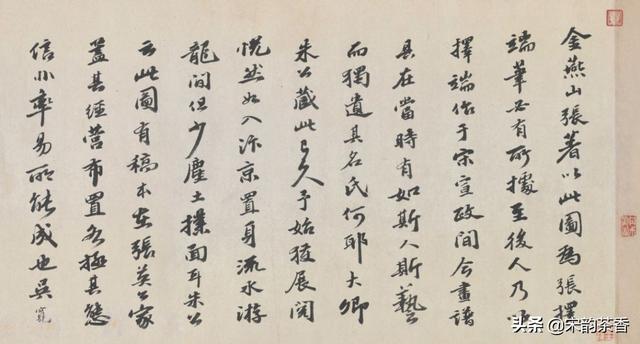 金燕山張著以此圖爲張擇
端筆必有所據至後人乃謂
擇端作于宋宣政間今畫譜
具在當時有如斯人斯藝
而獨遺其名氏何耶大卿
朱公藏此已久予始獲展閱
恍然如入汴京置身流水游
龍間但少塵土撲面耳朱公
云此圖有稿本在張英公家
蓋其經營布置各極其態
信非率易所能成也吳寬
头条@宋韵茶香